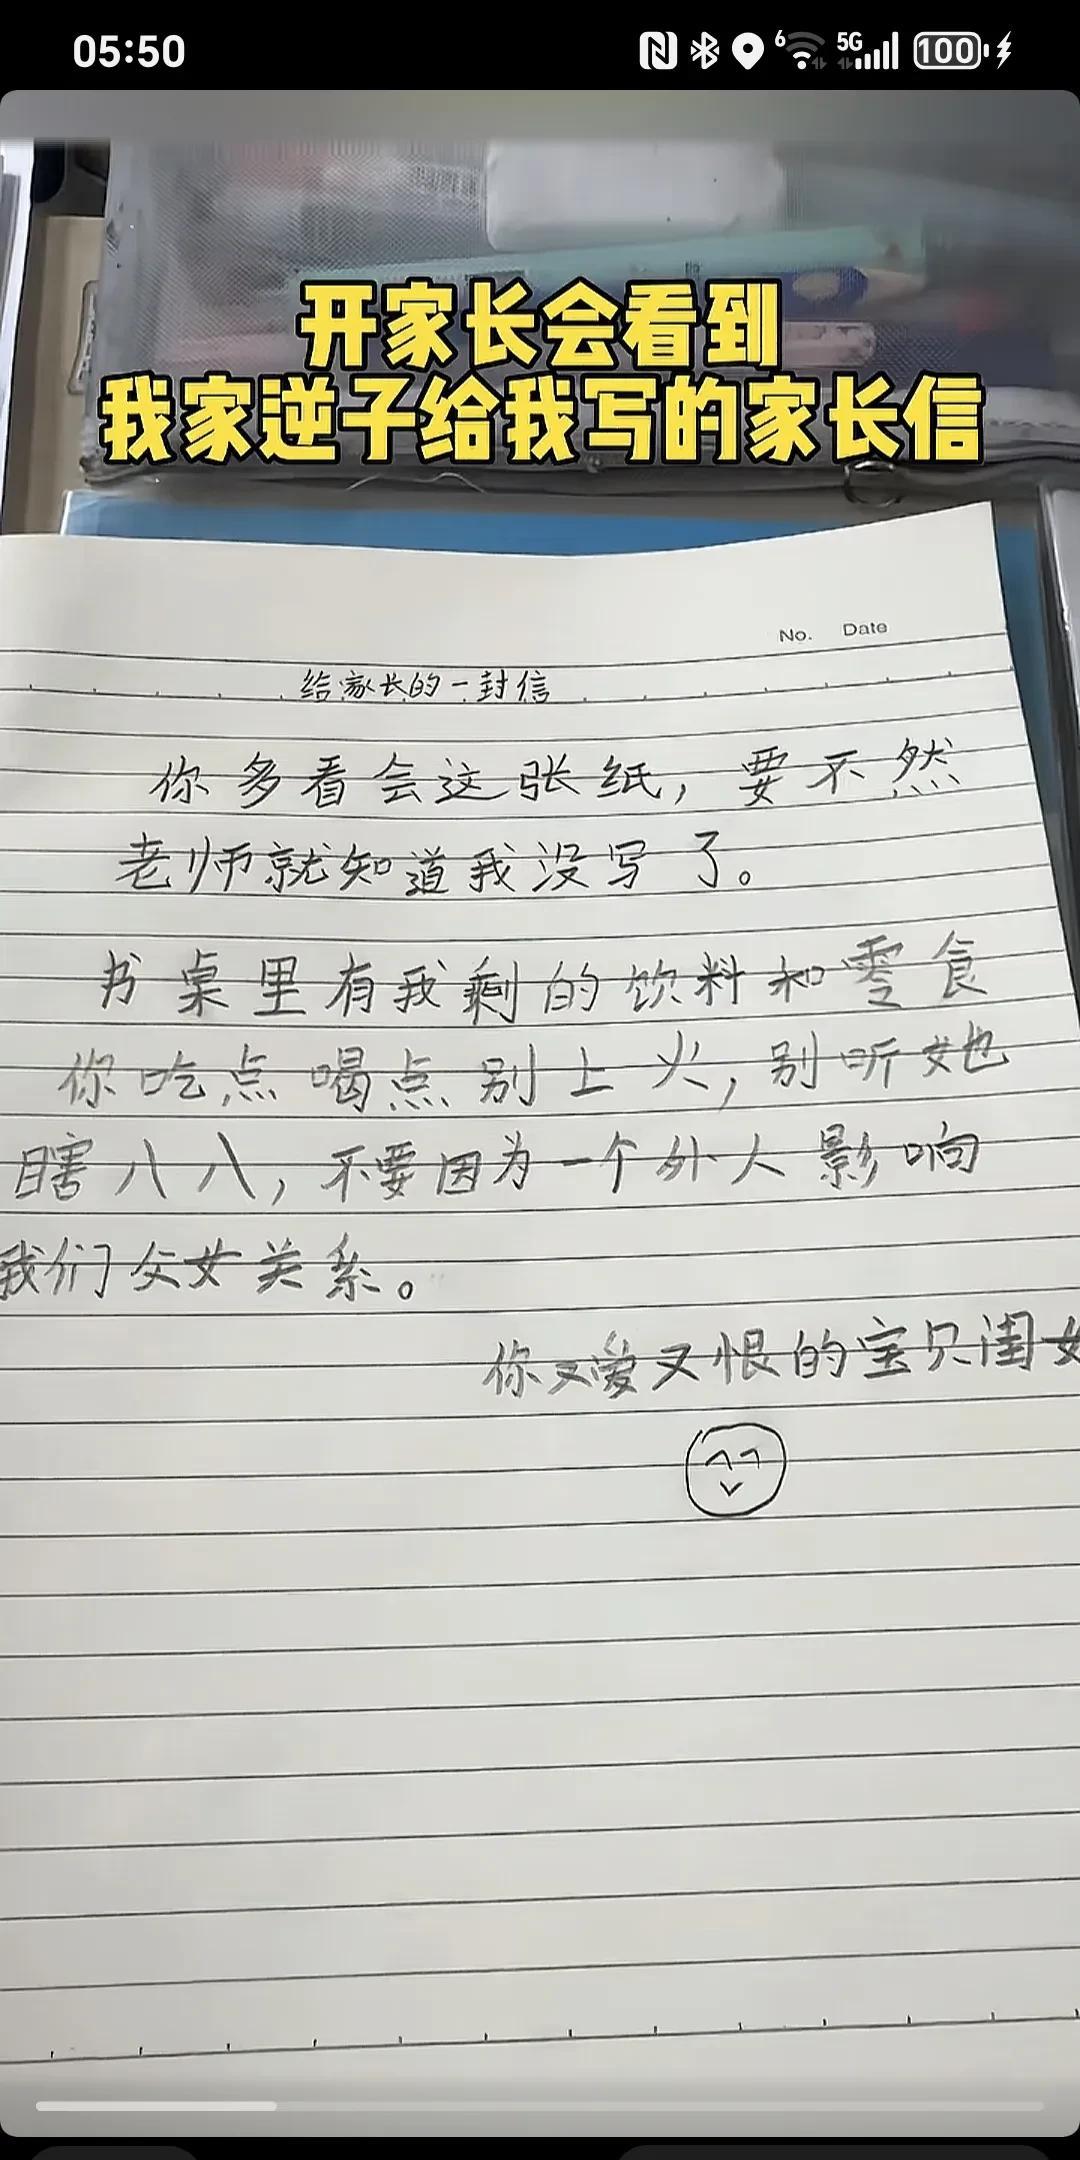 05:50
6
5G
100
开家长会看到
我家逆子给我写的家长信
No. Date
给家长的一封信
你多看会这张纸，要不然
老师就知道我没写了。
书桌里有我剩的饮料和零食
你吃点喝点别上火，别听她
瞎八八，不要因为一个外人影响
我们父女关系。
你又爱又恨的宝贝闺女